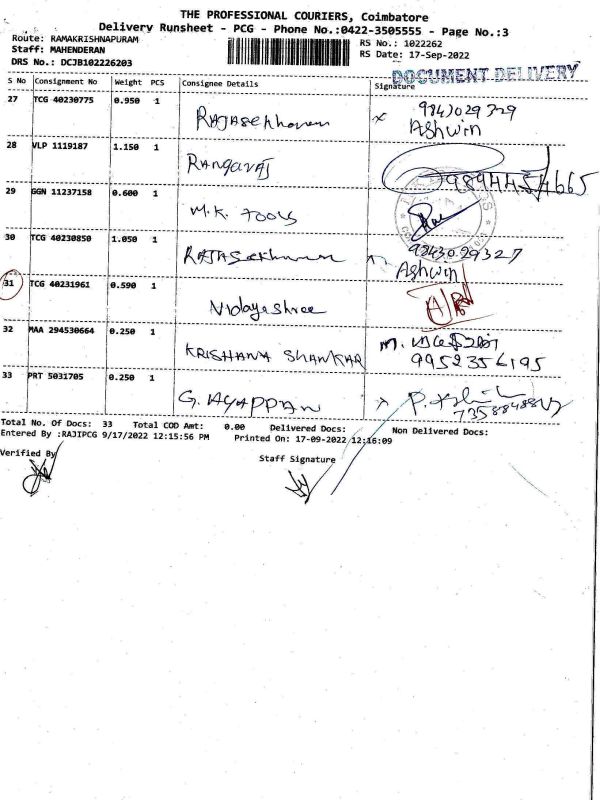 THE PROFESSIONAL COURIERS, Coimbatore
Delivery Runsheet - PCG - Phone No.:0422-3505555 - Page No.:3
Route: RAMAKRISHNAPURAM
RS No.: 1022262
Staff: MAHENDERAN
RS Date: 17-Sep-2022
DRS No.: DCJB102226203
DOCUMENT DELIVERY
S No Consignment No Weight PCS Consignee Details Signature
27 TCG 40230775 0.950 1 RAJASekharan x 9843029329
Ashwin
28 VLP 1119187 1.150 1 RANgaraj
29 GGN 11237158 0.600 1 M.K. TOOLS
30 TCG 40230850 1.050 1 RAJASekharan 9843029327
Ashwin
31 TCG 40231961 0.590 1 Vidayashree
32 MAA 294530664 0.250 1 KRISHANA SHANKAR
9952356195
33 PRT 5031705 0.250 1 G. AYAPPAN
Total No. Of Docs: 33 Total COD Amt: 0.00 Delivered Docs: Non Delivered Docs:
Entered By :RAJIPCG 9/17/2022 12:15:56 PM Printed On: 17-09-2022 12:16:09
Verified By
Staff Signature